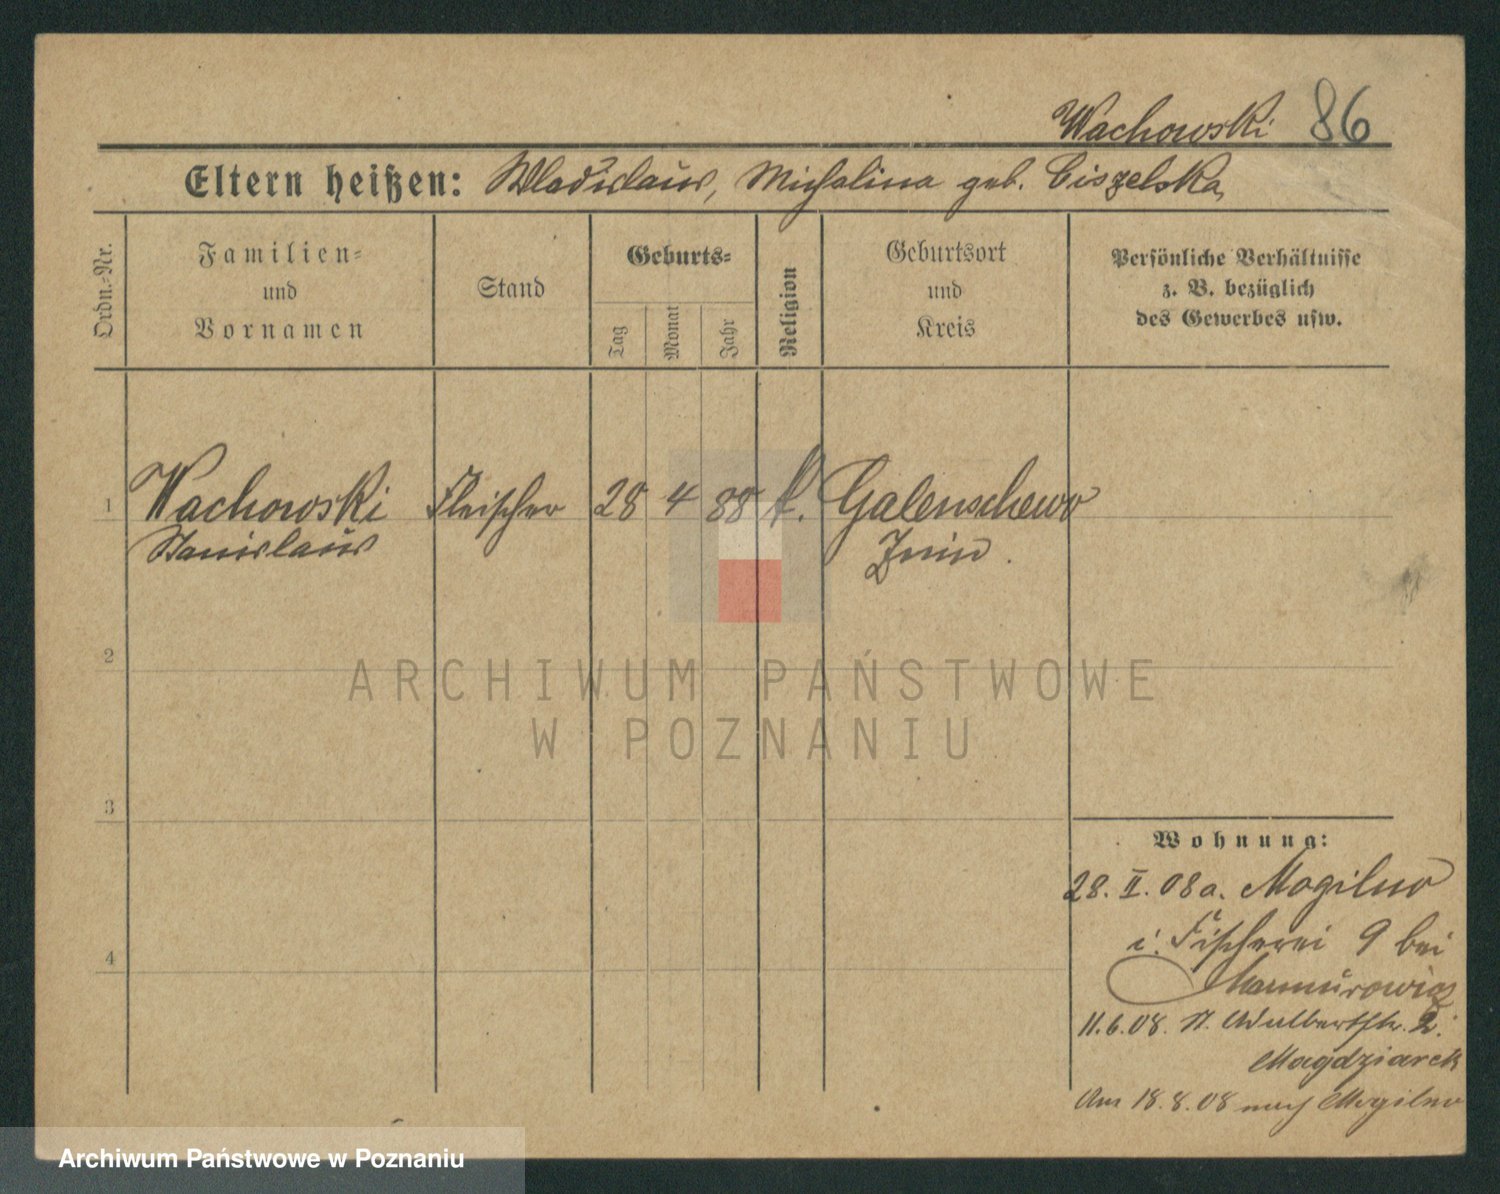 Wachowski 86
Eltern heißen: Wladislaus, Michalina geb. Ciszelska
Ordn.-Nr.
Familien-
und
Vornamen
Stand
Geburts-
Tag
Monat
Jahr
Religion
Geburtsort
und
Kreis
Persönliche Verhältnisse
z. B. bezüglich
des Gewerbes usw.
1 Wachowski Fleischer 28 4 88 k. Galenschewo
Stanislaus Znin.
2
ARCHIWUM PAŃSTWOWE
W POZNANIU
3
Wohnung:
28. II. 08 a. Mogilno
i. Fischerei 9 bei
4
11.6.08. St. Adalbertstr. 2.
Magdziarek
Am 18.8.08 nach Mogilno
Archiwum Państwowe w Poznaniu